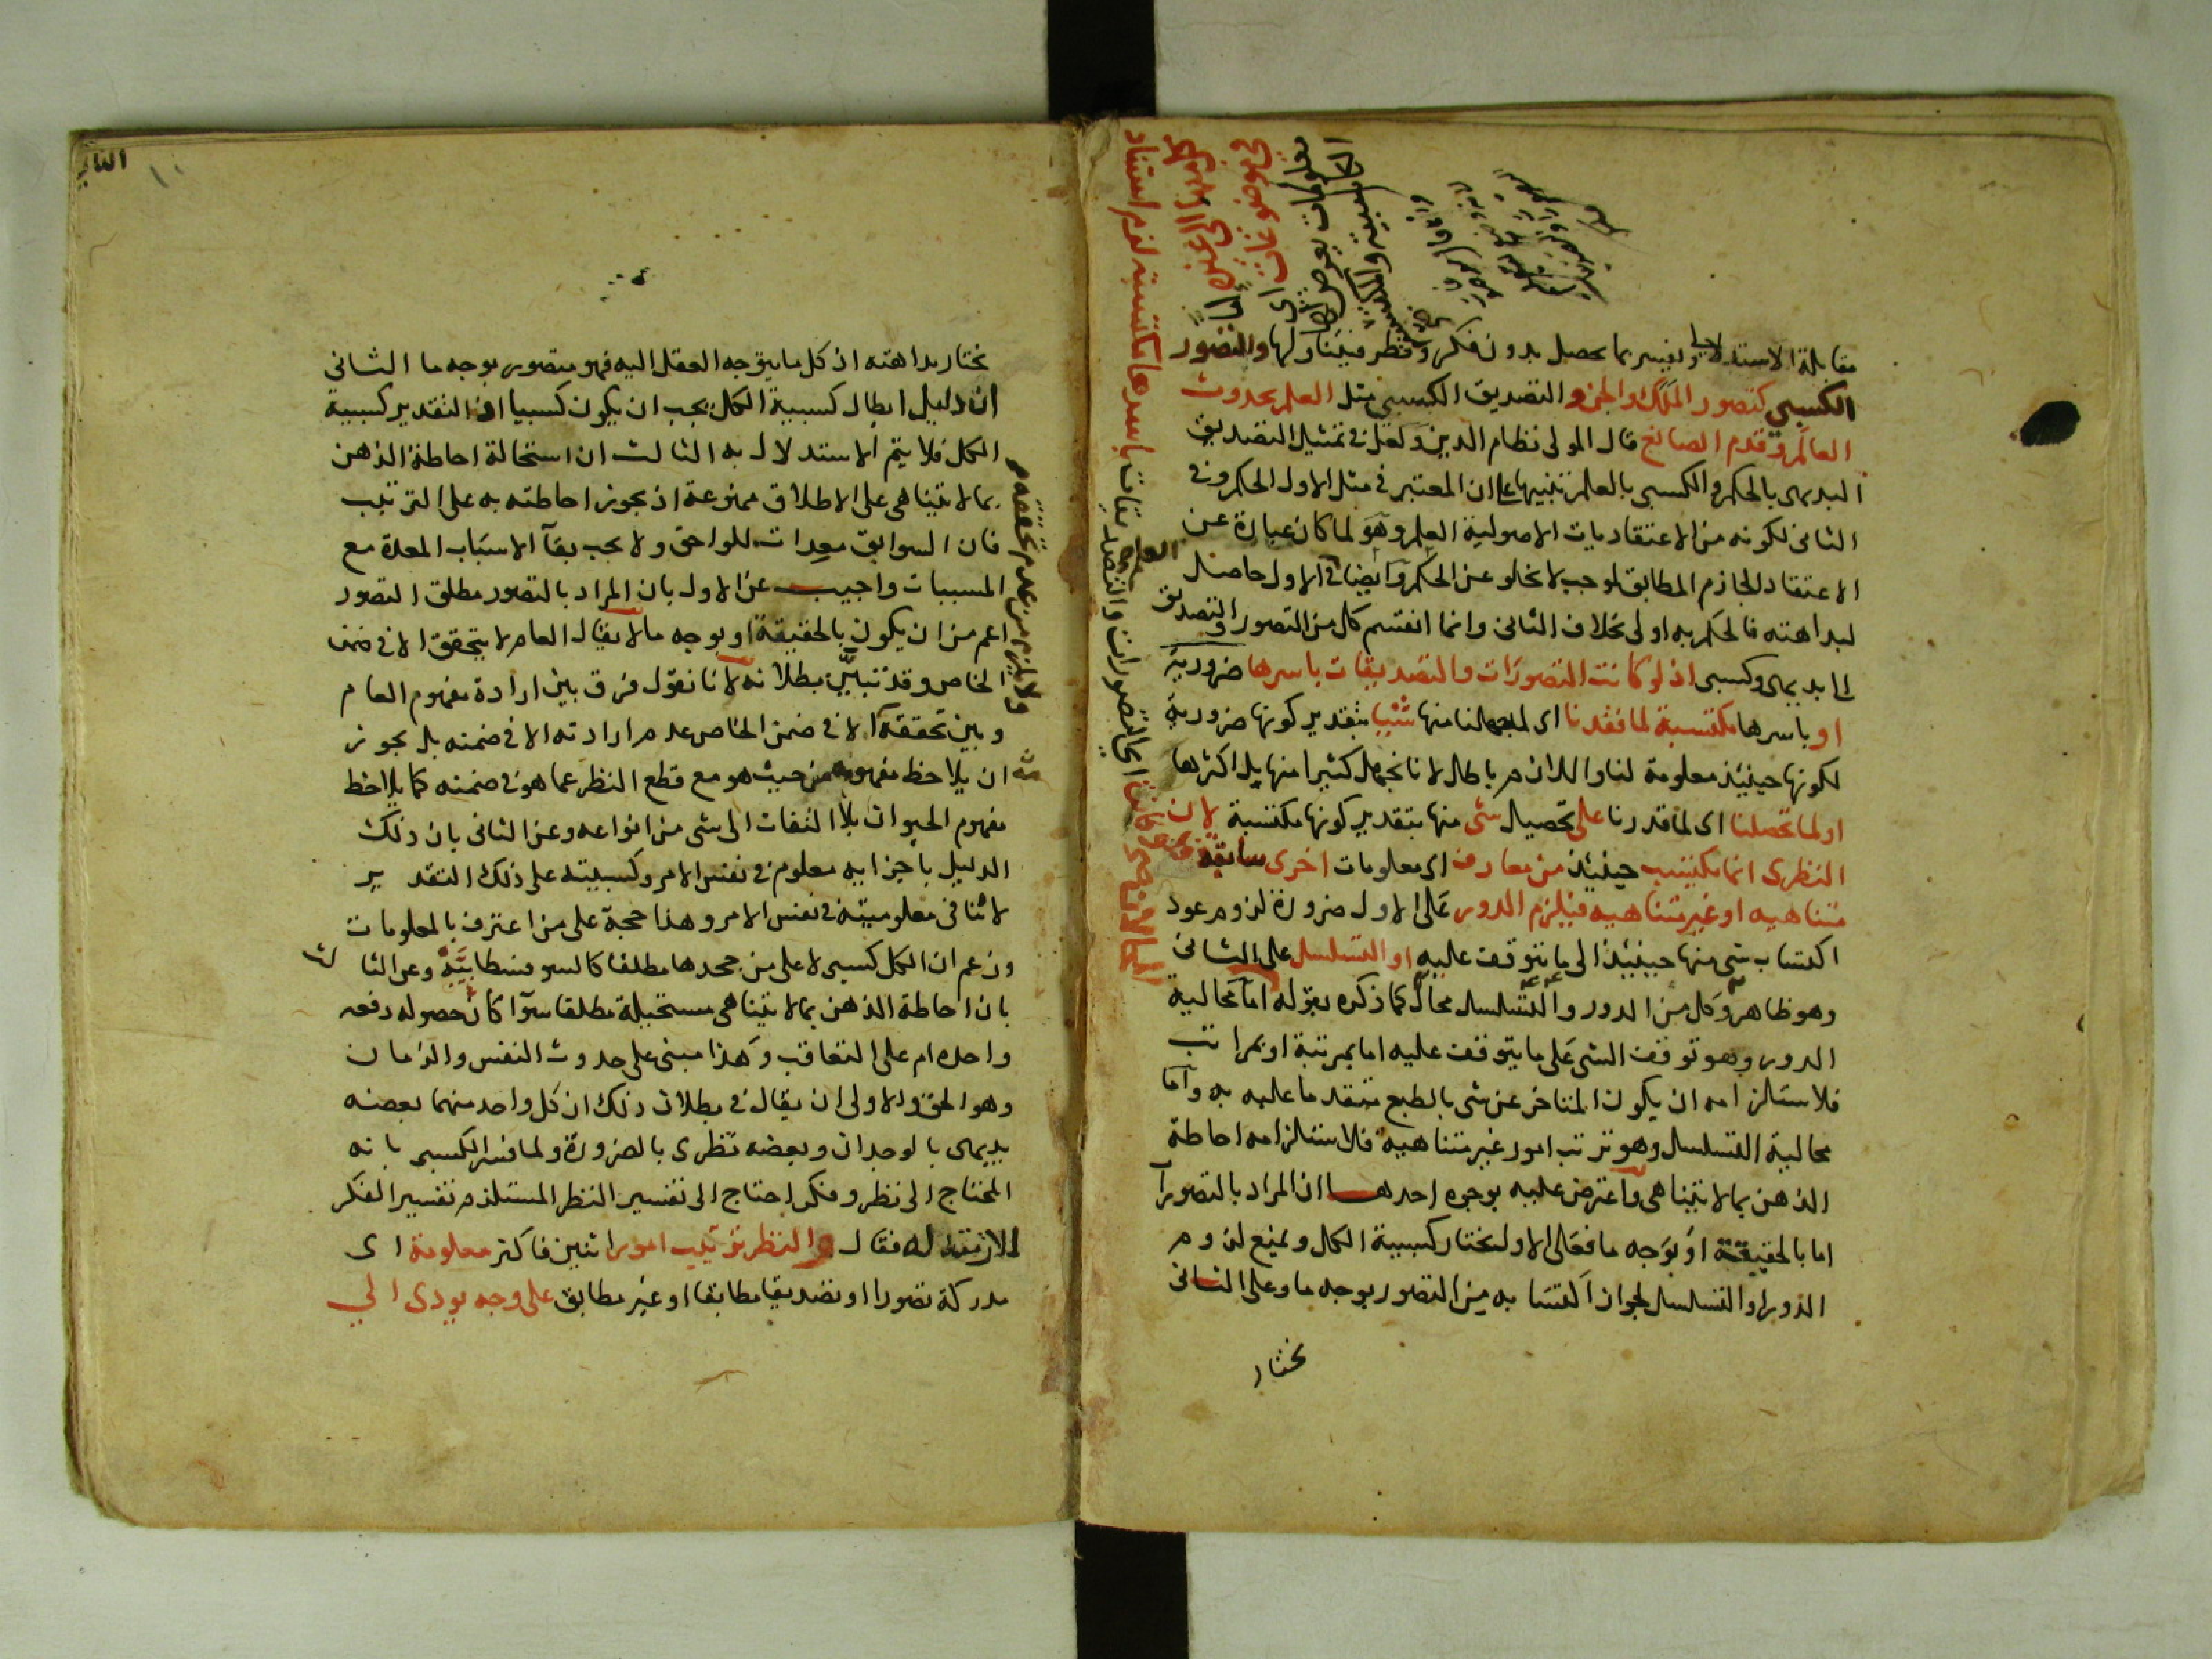 مقابلة الاستدلالي ويفسر بما يحصل بدون فكر ونظر فيتناولها والتصور
الكسبي كتصور الملك والجن والتصديق الكسبي مثل العلم بحدوث
العالم وقدم الصانع قال المولى نظام الدين ولعل في تمثيل التصديق
البديهى بالحكم والكسبي بالعلم تنبيها على ان المعتبر في مثل الاول الحكم وفي
الثانى لكونه من الاعتقاديات الاصولية العلم وهو لما كان عبارة عن
الاعتقاد الجازم المطابق لموجب لا يخلو عن الحكم وايضا في الاول حاصل
لبداهته فالحكم به اولى بخلاف الثانى وانما انقسم كل من التصور والتصديق
الى بديهى وكسبى اذ لو كانت التصورات والتصديقات باسرها ضرورية
او باسرها مكتسبة لما فقدنا اى لم يجهلنا منها شيئا بتقدير كونها ضرورية
لكونها حينئذ معلومة لنا واللازم باطل لانا نجهل كثيرا منها بل اكثرها
او لما تحصلنا اى لما قدرنا على تحصيل شى منها بتقدير كونها مكتسبة لان
النظرى انما يكتسب حينئذ من معارف اى معلومات اخرى سابقة
متناهيه او غير متناهيه فيلزم الدور على الاول ضرورة لزوم عود
اكتساب شى منها حينئذ الى ما يتوقف عليه او التسلسل على الثانى
وهو ظاهر وكل من الدور والتسلسل محال كما ذكره بقوله اما محالية
الدور وهو توقف الشى على ما يتوقف عليه اما بمرتبة او بمراتب
فلاستلزامه ان يكون المتاخر عن شى بالطبع متقدما عليه به واما
محالية التسلسل وهو ترتب امور غير متناهيه فلاستلزامه احاطة
الذهن بما لا يتناهى واعترض عليه بوجوه احدها ان المراد بالتصور
اما بالحقيقة او بوجه ما فعلى الاول نختار كسبية الكل ونمنع لزوم
الدور او التسلسل لجواز اكتسابه من التصور بوجه ما وعلى الثانى
نختار
١٠
نختار بداهته اذ كل ما يتوجه العقل اليه فهو متصور بوجه ما الثانى
ان دليل ابطال كسبية الكل يجب ان يكون كسبيا اذ التقدير كسبية
الكل فلا يتم الاستدلال به الثالث ان استحالة احاطة الذهن
بما لا يتناهى على الاطلاق ممنوعة اذ يجوز احاطته به على الترتيب
فان السوابق معدات للواحق ولا يجب بقآ الاسباب المعدة مع
المسببات واجيب عن الاول بان المراد بالتصور مطلق التصور
اعم من ان يكون بالحقيقة او بوجه ما لا يقال العام لا يتحقق الا في ضمن
الخاص وقد تبين بطلانه لانا نقول فرق بين ارادة مفهوم العام
وبين تحققه الا في ضمن الخاص عدم ارادته الا في ضمنه بل يجوز
ان يلاحظ مفهومه من حيث هو مع قطع النظر عما هو في ضمنه كما يلاحظ
مفهوم الحيوان بلا التفات الى شى من انواعه وعن الثانى بان ذلك
الدليل باجزايه معلوم في نفس الامر وكسبيته على ذلك التقدير
لا تنافى معلوميته في نفس الامر وهذا حجة على من اعترف بالمعلومات
وزعم ان الكل كسبى لا على من جحدها مطلقا كالسوفسطاييه وعن الثالث
بان احاطة الذهن بما لا يتناهى مستحيلة مطلقا سوآ كان حصوله دفعه
واحده ام على التعاقب وهذا مبنى على حدوث النفس والزمان
وهو الحق والاولى ان يقال في بطلان ذلك ان كل واحد منهما بعضه
بديهى بالوجدان وبعضه نظرى بالضرورة ولما فسر الكسبى بانه
المحتاج الى نظر وفكر احتاج الى تفسير النظر المستلزم تفسير الفكر
فقال والنظر ترتيب امور اثنين فاكثر معلومة اى
مدركة تصورا او تصديقا مطابقا او غير مطابق على وجه يودى الي
ولا يلزم من عدم تحققه